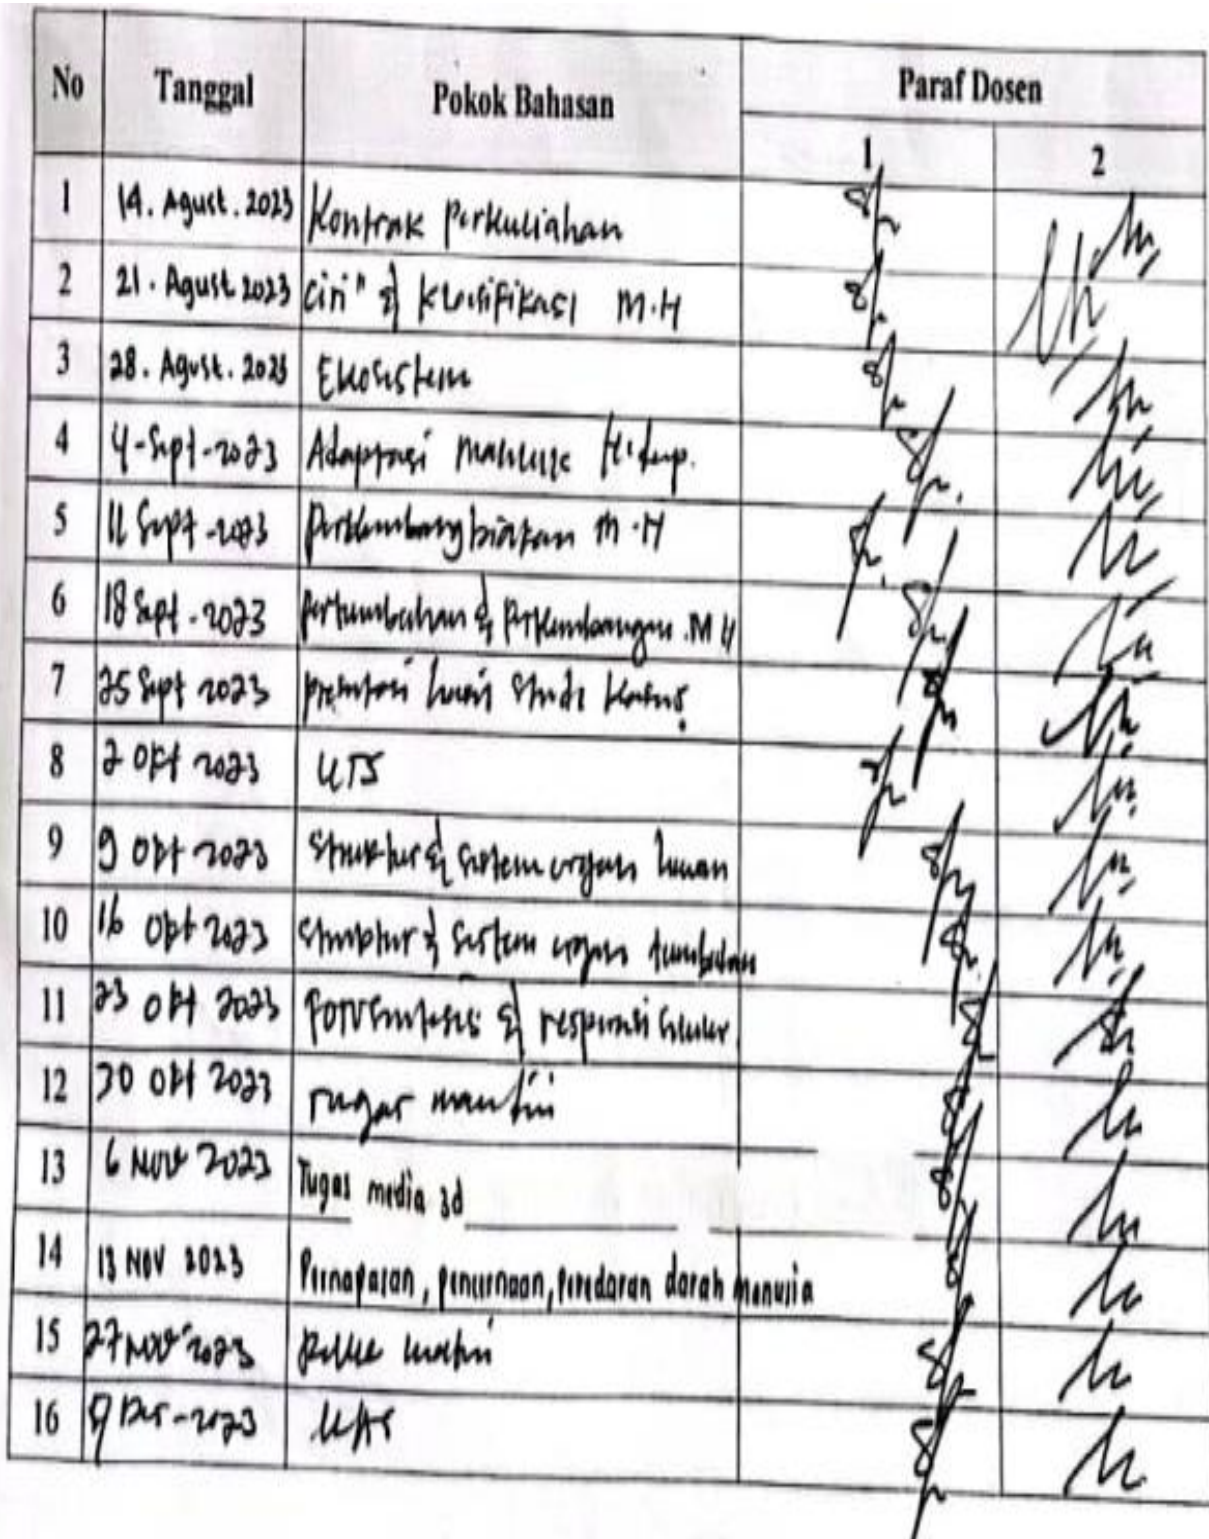 No Tanggal Pokok Bahasan Paraf Dosen
1 2
1 14. Agust. 2023 Kontrak perkuliahan
2 21. Agust 2023 Ciri" & klasifikasi M.H
3 28. Agust. 2023 Ekosistem
4 4-Sept-2023 Adaptasi Makhluk Hidup.
5 11 Sept-2023 Perkembangbiakan M.H
6 18 Sept-2023 & Perkembangan M H
7 25 Sept 2023 presentasi hasil studi kasus
8 2 Okt 2023 UTS
9 9 Okt 2023 Struktur & sistem organ hewan
10 16 Okt 2023 Struktur & sistem organ
11 23 Okt 2023 & respirasi seluler
12 30 Okt 2023 Tugas
13 6 Nov 2023 Tugas media 3d
14 13 NOV 2023 Pernapasan, pencernaan, peredaran darah manusia
15 27 Nov 2023
16 2023 UAS